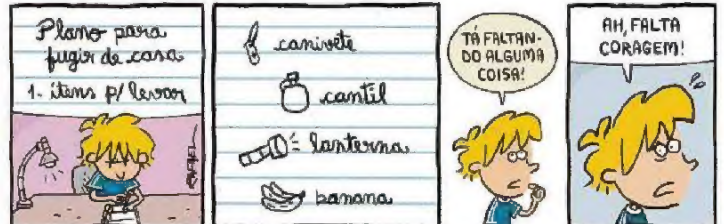 Plano para
fugir de casa
1- itens p/ levar
canivete
cantil
lanterna
banana
TÁ FALTAN-
DO ALGUMA
COISA!
AH, FALTA
CORAGEM!